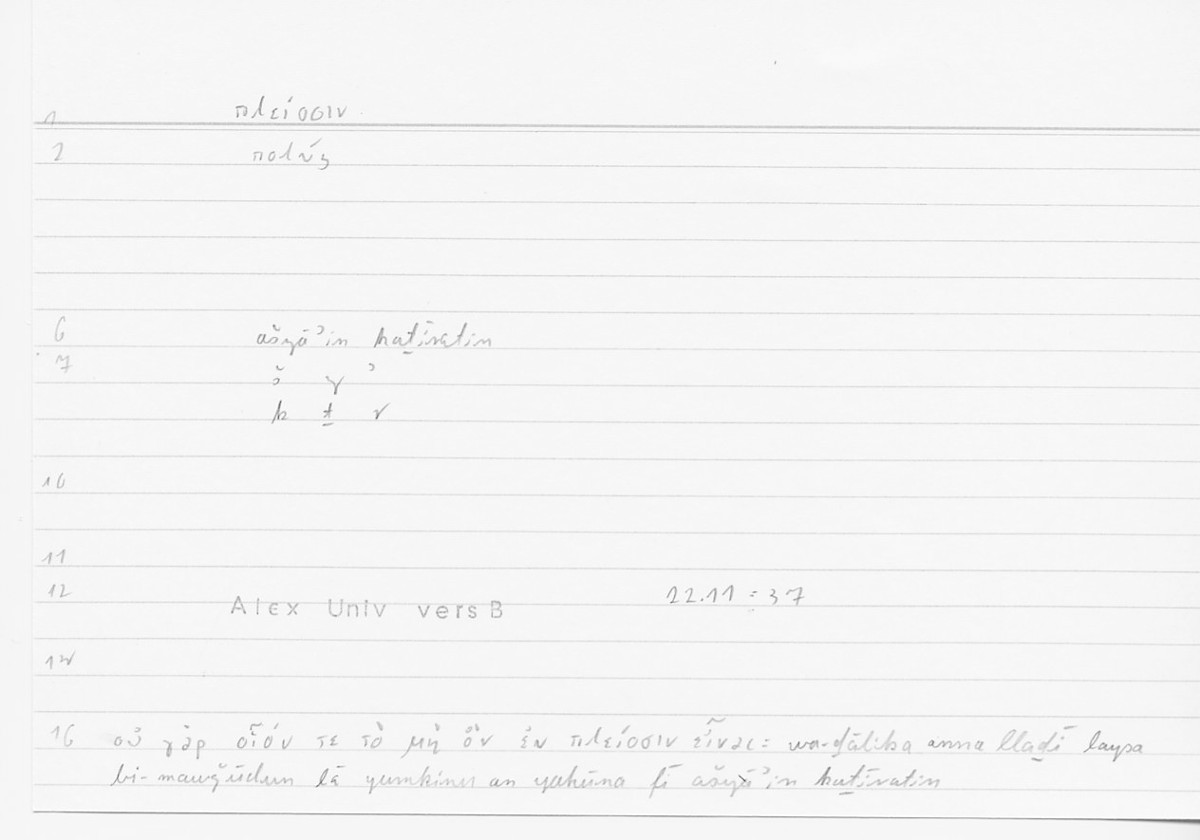 1 πλείοσιν
2 πολύς
6 ašyāʾin kaṯīratin
7
š y ʾ
k ṯ r
10
11
12 Alex Univ vers B 22.11 : 37
14
16 οὐ γὰρ οἷόν τε τὸ μὴ ὂν ἐν πλείοσιν εἶναι = wa-ḏālika anna llaḏī laysa
bi-mawǧūdun lā yumkinu an yakūna fī ašyāʾin kaṯīratin